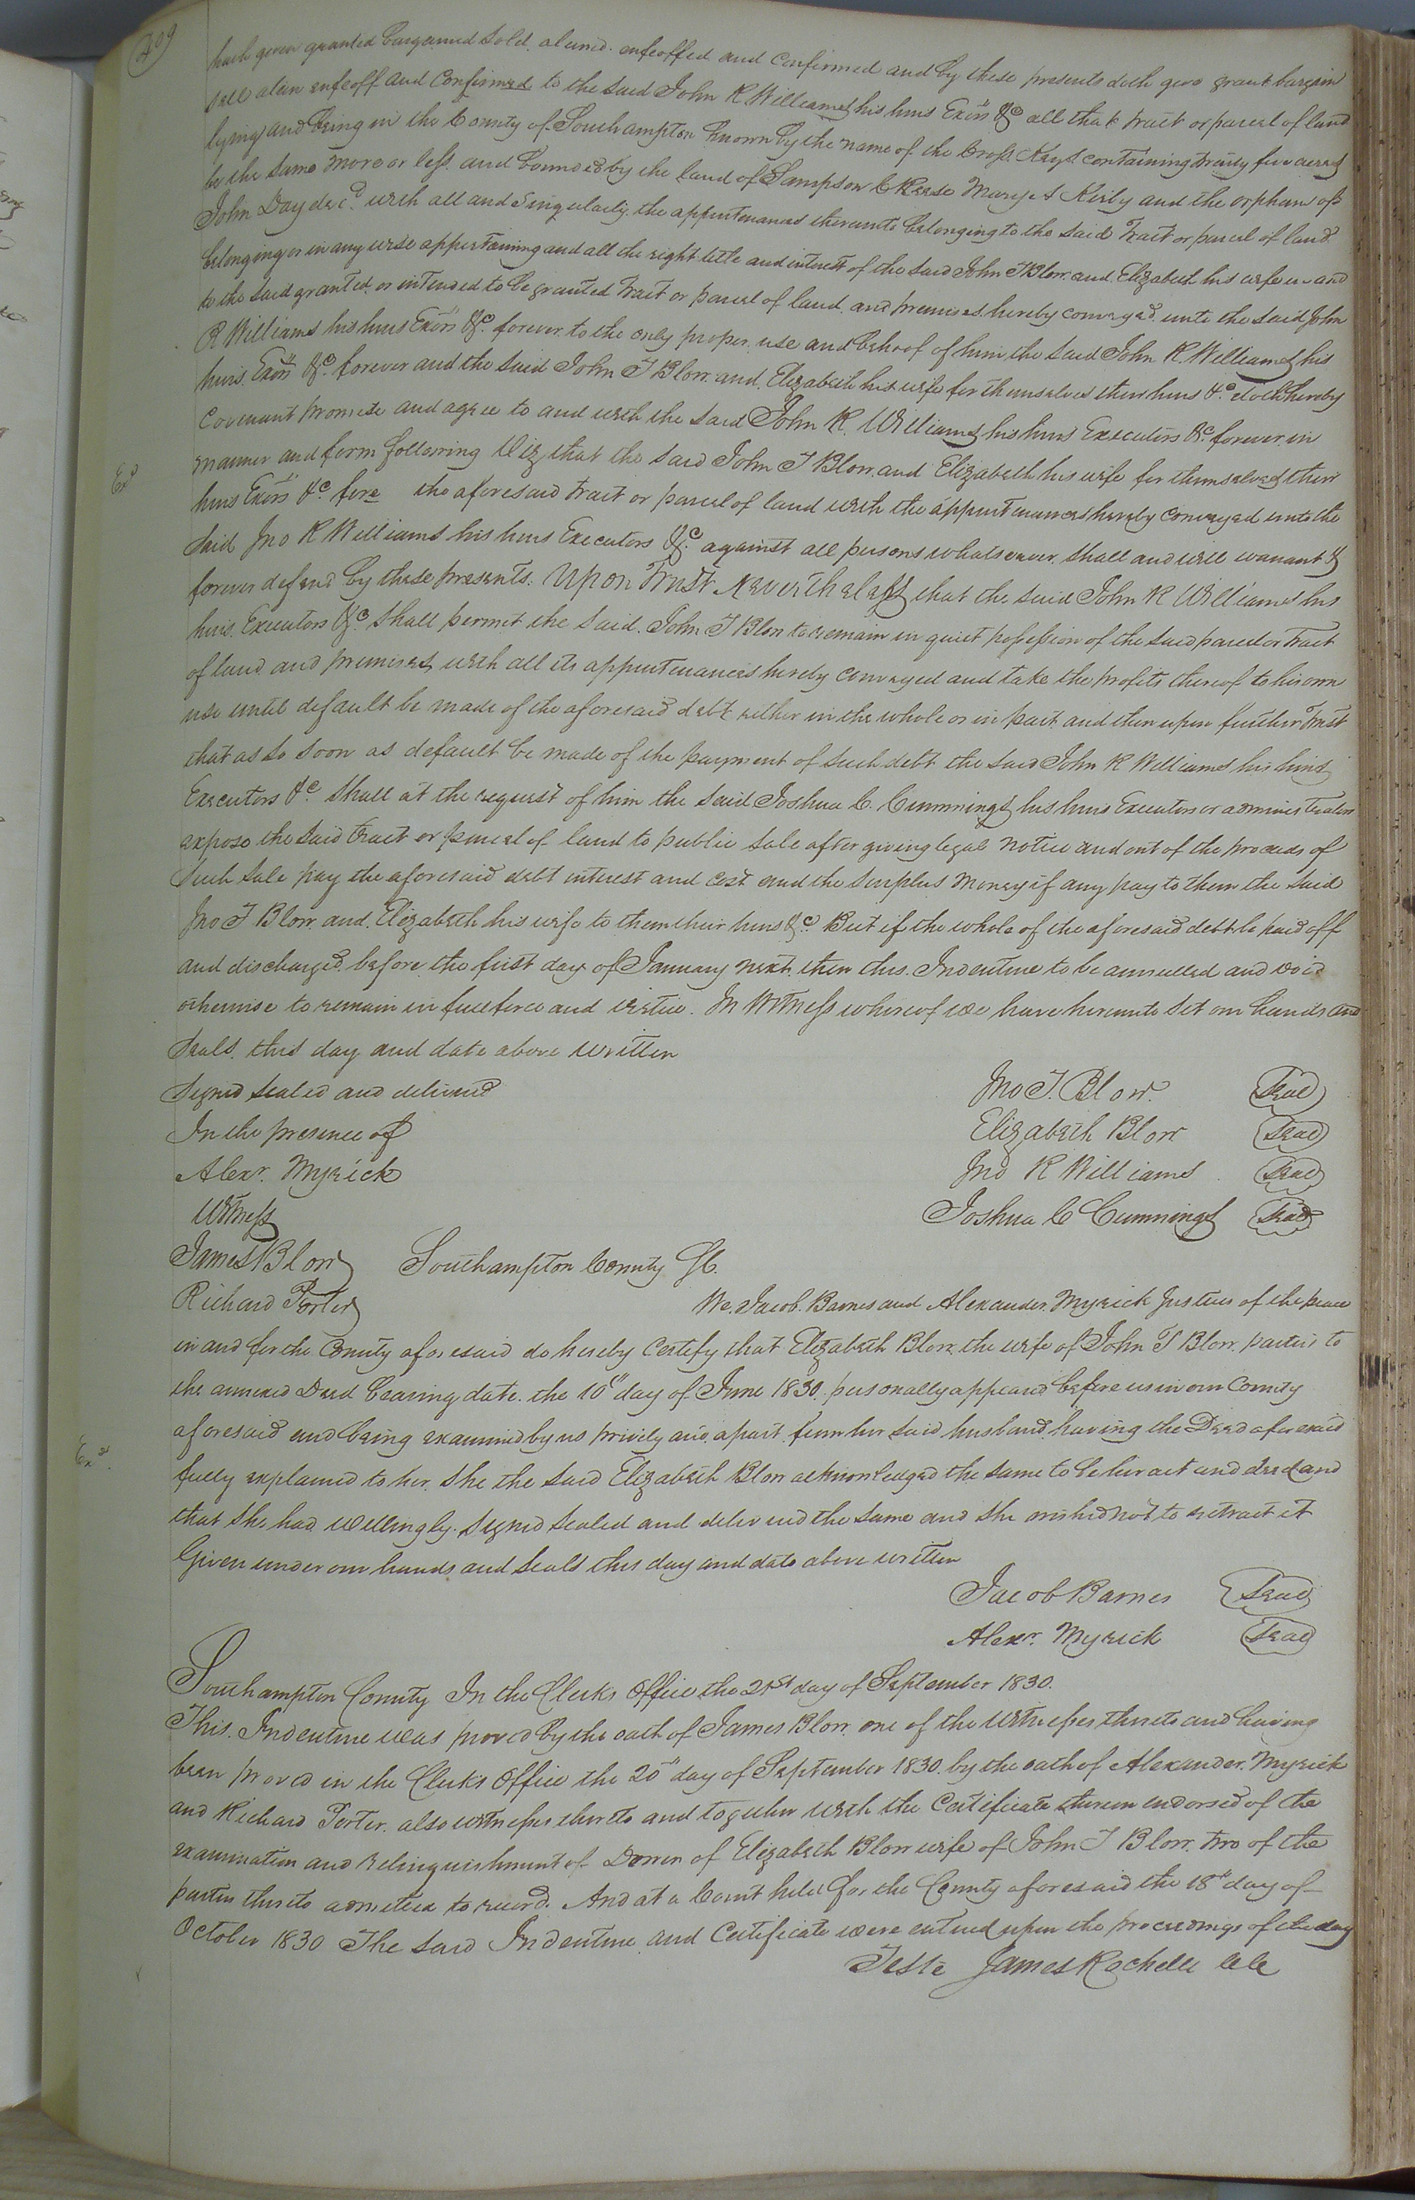 409
hath given granted bargained sold, aliened. enfeoffed and confirmed and by these presents doth give grant bargain
sell alien enfeoff and confirmed to the said John R Williams his heirs Exors &c all that tract or parcel of land
lying and being in the County of Southampton known by the name of the Cross Keys containing twenty five acres
be the same more or less and bounded by the land of Sampson C Reese Margaret Kirby and the orphans of
John Day decd. with all and singularly the appurtenances thereunto belonging to the said Tract or parcel of land
belonging or in any wise appertaining and all the right title and interest of the said John T Blow and Elizabeth his wife in and
to the said granted or intended to be granted Tract or parcel of land and premises hereby conveyed unto the said John
R Williams his heirs Exors &c. forever to the only proper use and behoof of him the said John R Williams his
heirs Exors &c. forever and the said John T Blow and Elizabeth his wife for themselves their heirs &c doth hereby
Covenant promise and agree to and with the said John R. Williams his heirs Executors &c forever in
manner and form following Viz that the said John T Blow and Elizabeth his wife for themselves their
Exd
heirs Exors &c fore the aforesaid tract or parcel of land with the appurtenances hereby conveyed unto the
said Jno R Williams his heirs Executors &c. against all persons whatsoever shall and will warrant &
forever defend by these presents. Upon Trust Nevertheless that the said John R Williams his
heirs Executors &c shall permit the said. John T Blow to remain in quiet possession of the said parcel or Tract
of land and premises with all its appurtenances hereby conveyed and take the profits thereof to his own
use until default be made of the aforesaid debt either in the whole or in part and then upon further Trust
that as so soon as default be made of the payment of such debt the said John R Williams his heirs
Executors &c shall at the request of him the said Joshua C. Cummings his heirs Executors or administrators
expose the said tract or parcel of land to public sale after giving legal notice and out of the proceeds of
such sale pay the aforesaid debt interest and cost and the surplus money if any pay to them the said
Jno T Blow and Elizabeth his wife to them their heirs &c. But if the whole of the aforesaid debt be paid off
and discharged before the first day of January next then this. Indenture to be annulled and void
otherwise to remain in full force and virtue. In Witness whereof we have hereunto set our hands and
seals this day and date above written
Signed sealed and delivered
Jno T. Blow Seal
In the presence of
Elizabeth Blow Seal
Alexr. Myrick
Jno R Williams Seal
Witness
Joshua C Cummings Seal
James Blow Southampton County Sc.
Richard Porter We. Jacob. Barnes and Alexander. Myrick Justices of the peace
in and for the County aforesaid do hereby certify that Elizabeth Blow the wife of John T Blow. parties to
the annexed Deed bearing date the 10th day of June 1830. personally appeared before us in our County
Exd.
aforesaid and being examined by us privily and apart from her said husband having the Deed aforesaid
fully explained to her. she the said Elizabeth Blow acknowledged the same to be her act and deed and
that she had willingly. signed sealed and delivered the same and she wished not to retract it
Given under our hands and seals this day and date above written
Jacob Barnes Seal
Alexr. Myrick Seal
Southampton County In the Clerks Office the 21st day of September 1830.
This. Indenture was proved by the oath of James Blow one of the Witnesses thereto and having
been proved in the Clerk's Office the 20th day of September 1830. by the oath of Alexander. Myrick
and Richard Porter. also witnesses thereto and together with the Certificate thereon endorsed of the
examination and relinquishment of Dower of Elizabeth Blow wife of John T Blow. two of the
parties thereto admitted to record. And at a Court held for the County aforesaid the 18th day of
October 1830 The said Indenture and Certificate were entered upon the proceedings of the day
Teste James Rochelle ClC